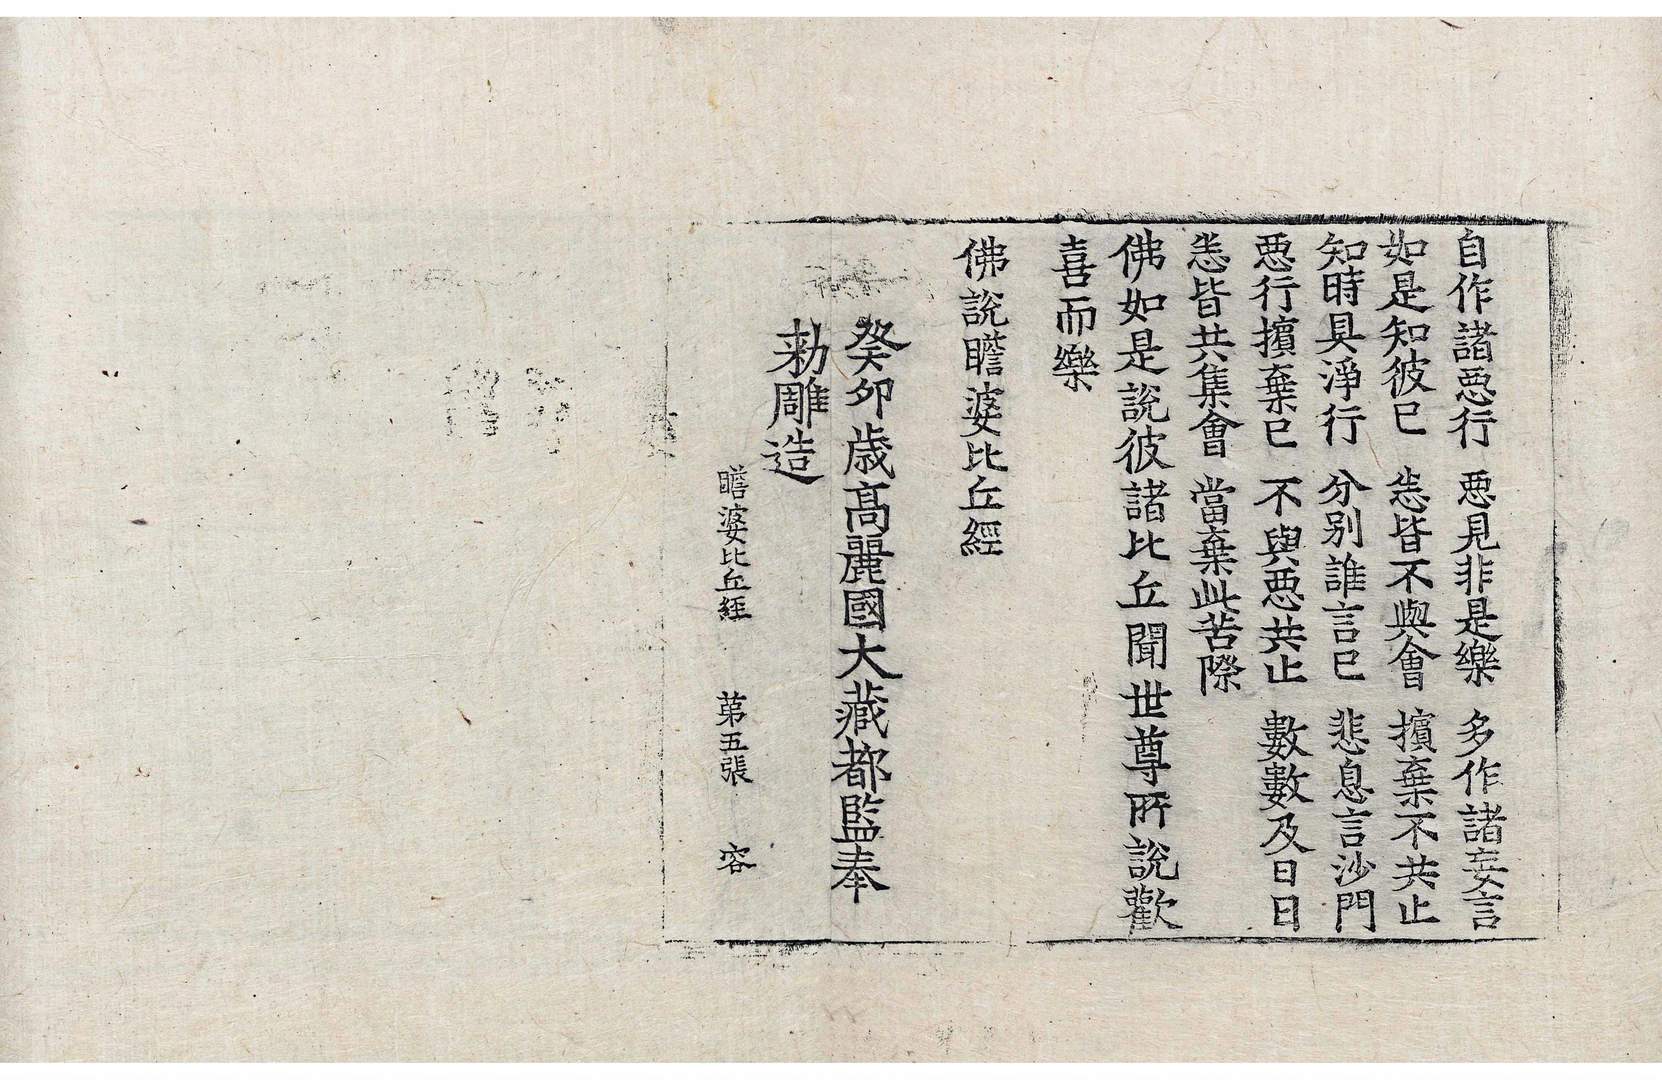 自作諸惡行　惡見非是樂　多作諸妄言
如是知彼已　恙皆不與會　擯棄不共止
知時具淨行　分別誰言已　悲息言沙門
惡行擯棄已　不與惡共止　數數及日日
恙皆共集會　當棄此苦際
佛如是說彼諸比丘聞世尊所說歡
喜而樂
佛說瞻婆比丘經
癸卯歲高麗國大藏都監奉
勅雕造
瞻婆比丘経　第五張　容